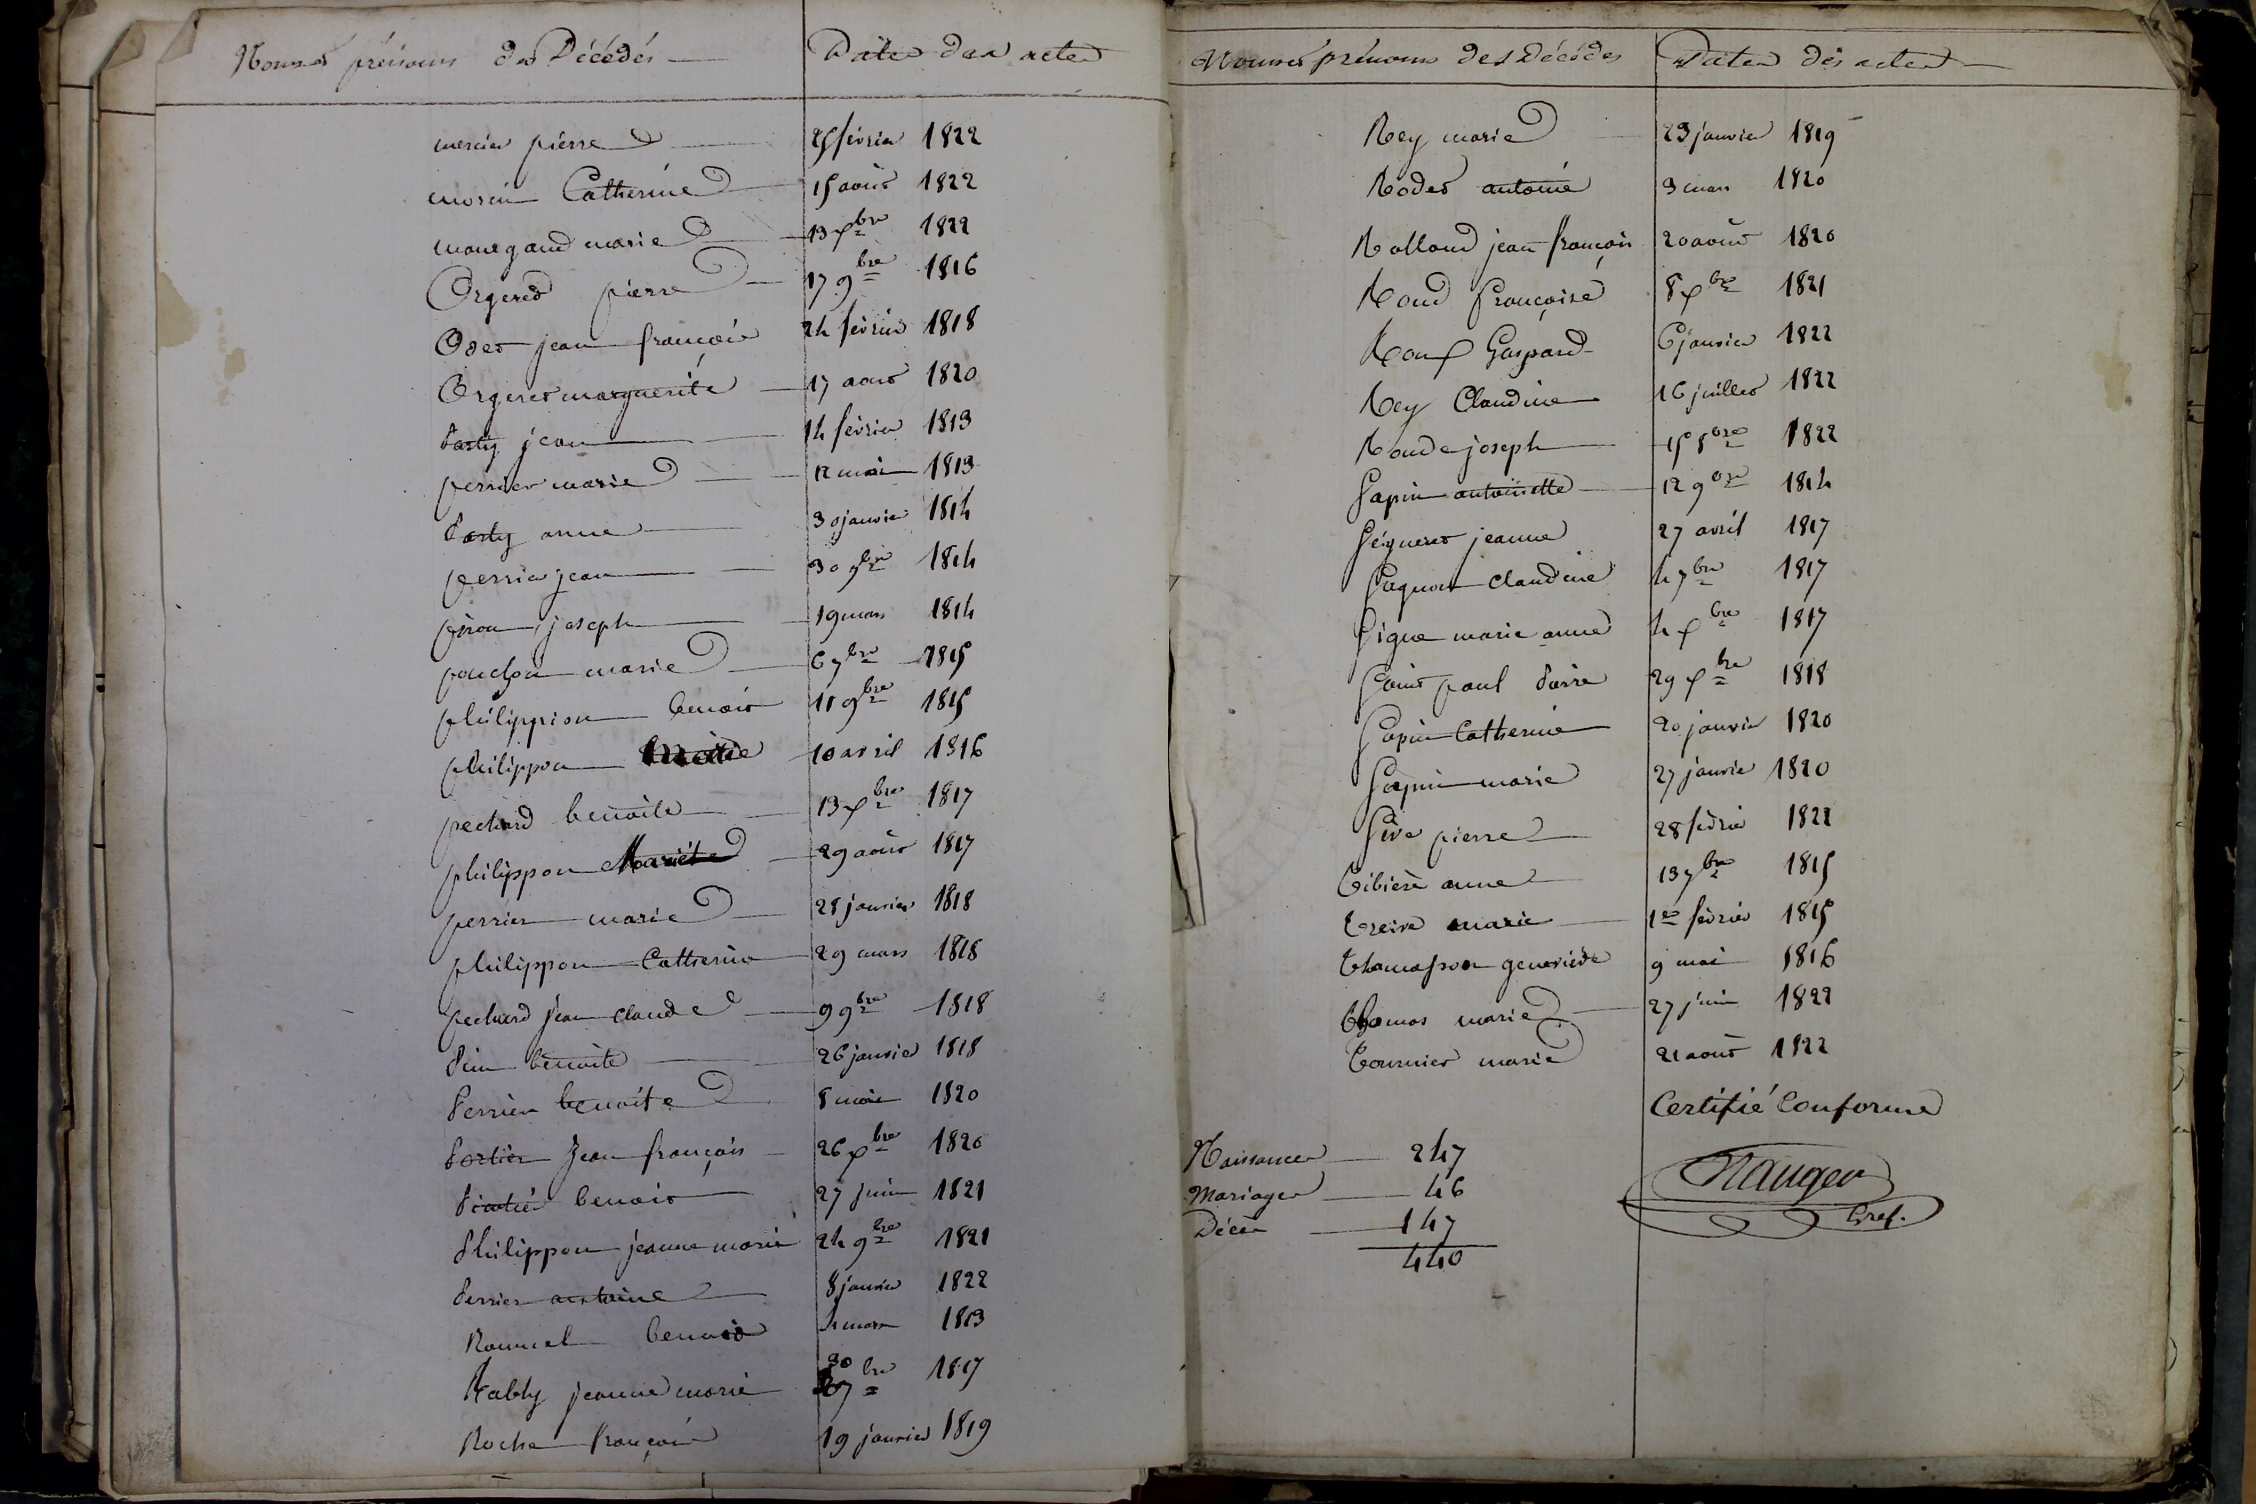 Noms et prénoms des Décédés Dates des actes
mercier pierre 25 février 1822
morin Catherine 15 août 1822
mauregaud marie 13 xbre 1822
Orgeret pierre 17 9bre 1816
Odet jean françois 24 février 1818
Orgeret marguerite 17 août 1820
Pasty jean 14 février 1813
perrier marie 12 mai 1813
Pasty anne 30 janvier 1814
perrier jean 30 9bre 1814
piron joseph 19 mars 1814
pouchon marie 6 7bre 1815
philippion benoit 11 9bre 1815
philippon 10 avril 1816
pechard benoite 13 xbre 1817
philippon Mariette 29 août 1817
perrier marie 28 janvier 1818
philippon Catherine 29 mars 1818
pechard jean claude 9 9bre 1818
Pin benoite 26 janvier 1818
Perrier benoite 8 mai 1820
Portier Jean françois 26 xbre 1820
benoit 27 juin 1821
Philippon jeanne marie 24 9bre 1821
Perrier antoine 8 janvier 1822
benoit 4 mars 1813
Rably jeanne marie 30 7bre 1817
Roche françois 19 janvier 1819
Noms et prénoms des Décédés Dates des actes
Rey marie 23 janvier 1819
Rodet antoine 3 mars 1820
Rolland jean françois 20 août 1820
françoise 8 xbre 1821
Roux Gaspard 6 janvier 1822
Rey Claudine 16 juillet 1822
joseph 15 8bre 1822
Sapin antoinette 12 9bre 1814
jeanne 27 avril 1817
claudine 4 7bre 1817
Signe marie anne 4 xbre 1817
Saint paul Pierre 29 xbre 1818
Sapin Catherine 20 janvier 1820
Sapin marie 27 janvier 1820
Sève pierre 28 février 1822
Tibière anne 13 7bre 1815
Treive marie 1er février 1815
Thomasson geneviève 9 mai 1816
Thomas marie 27 juin 1822
Tournier marie 21 août 1822
Certifié Conforme
Naissances 247
Mariages 46
Décès 147
440
Gref.